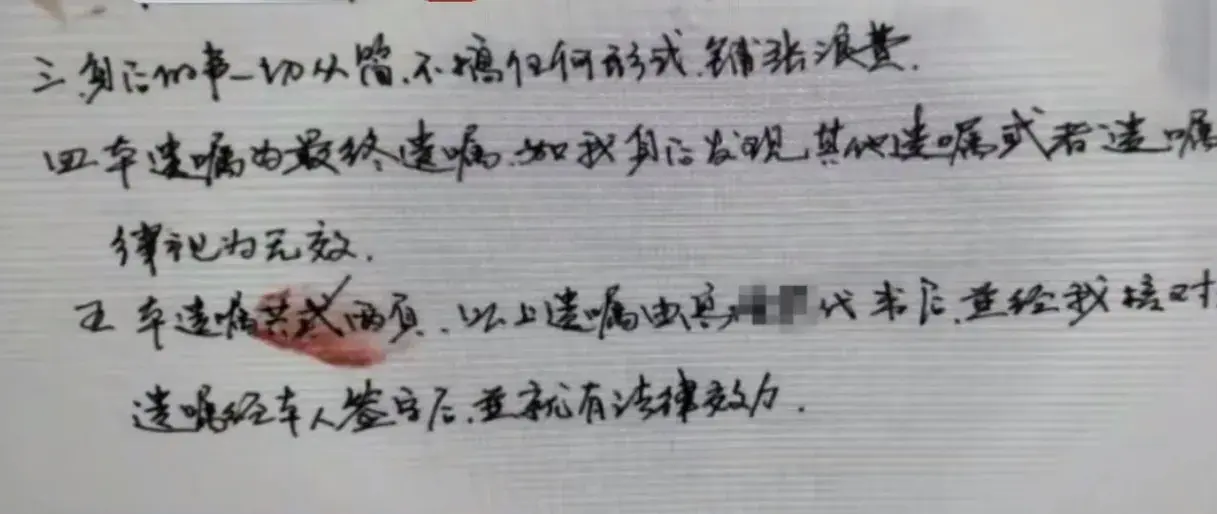 三.身后的事一切从简.不搞任何形式.铺张浪费.
四 本遗嘱为最终遗嘱.如我身后发现其他遗嘱或者遗嘱
律视为无效.
五 本遗嘱共式两页.以上遗嘱由 代书后.并经我核对
遗嘱经本人签字后.并就有法律效力.